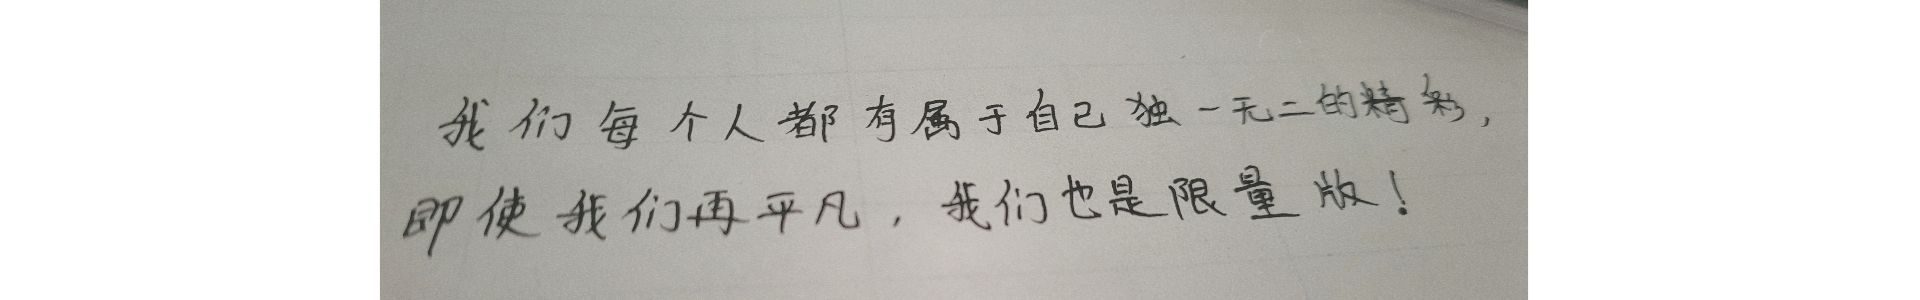 我们每个人都有属于自己独一无二的精彩，
即使我们再平凡，我们也是限量版！